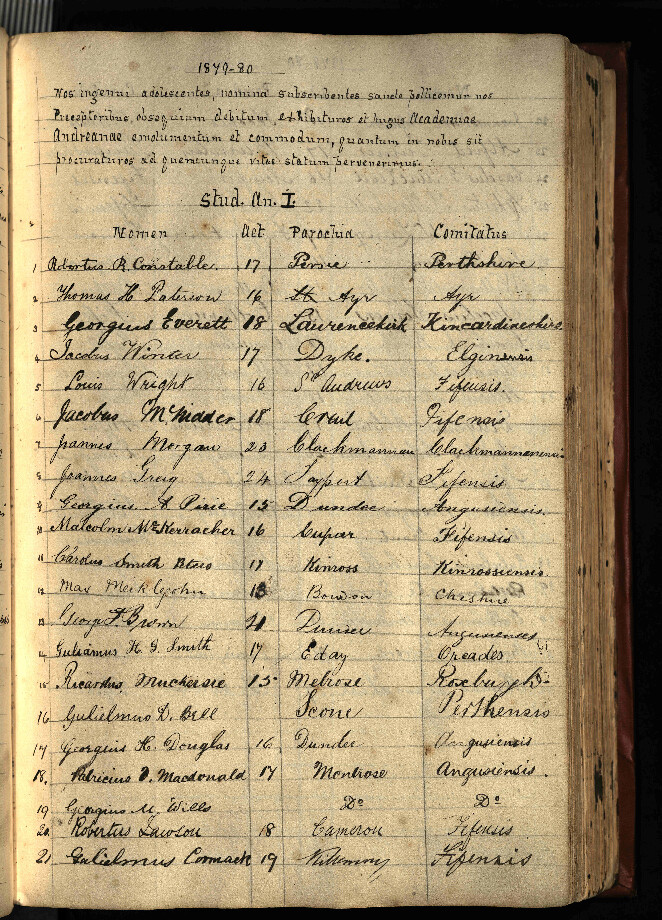 1879-80
Nos ingenui adolescentes, nomina subscribentes sancte pollicemur nos
Preceptoribus obsequium debitum, exhibituros et hujus Academiae
Andreanae emolumentum et commodum, quantum in nobis sit
procuraturos ad quemcunque vitae statum pervenerimus.
Stud. An. I.
Nomen Aet Parochia Comitatus
1 Robertus R. Constable. 17 Perthshire
2 Thomas H. Paterson 16 Ayr Ayr
3 Georgius Everett 18 Laurencekirk Kincardineshire
4 Jacobus Winter 17 Dyke. Elginensis
5 Louis Wright 16 St Andrews Fifensis.
6 Jacobus 18 Crail Fifensis
7 Joannes Morgan 23 Clackmannan
8 Joannes Greig 24 Fifensis
9 Georgius A. Pirie 15 Dundee Angusiensis.
10 Malcolm McKerracher 16 Cupar Fifensis
11 Smith 17 Kinross Kinrossiensis
12 Max Bowdon Cheshire
13 George F. Brown 21 Angusiensis
14 H. J. Smith 17 Eday Orcades
15 Ricardus Muckersie 15 Melrose
16 Gulielmus D. Bell Scone Perthensis
17 Georgius H. Douglas 16 Dundee Angusiensis
18. Patricius D. Macdonald 17 Montrose Angusiensis.
19. Georgius M. Wills Do Do
20. Robertus Lawson 18 Cameron Fifensis
21 Gulielmus Cormack 19 Fifensis